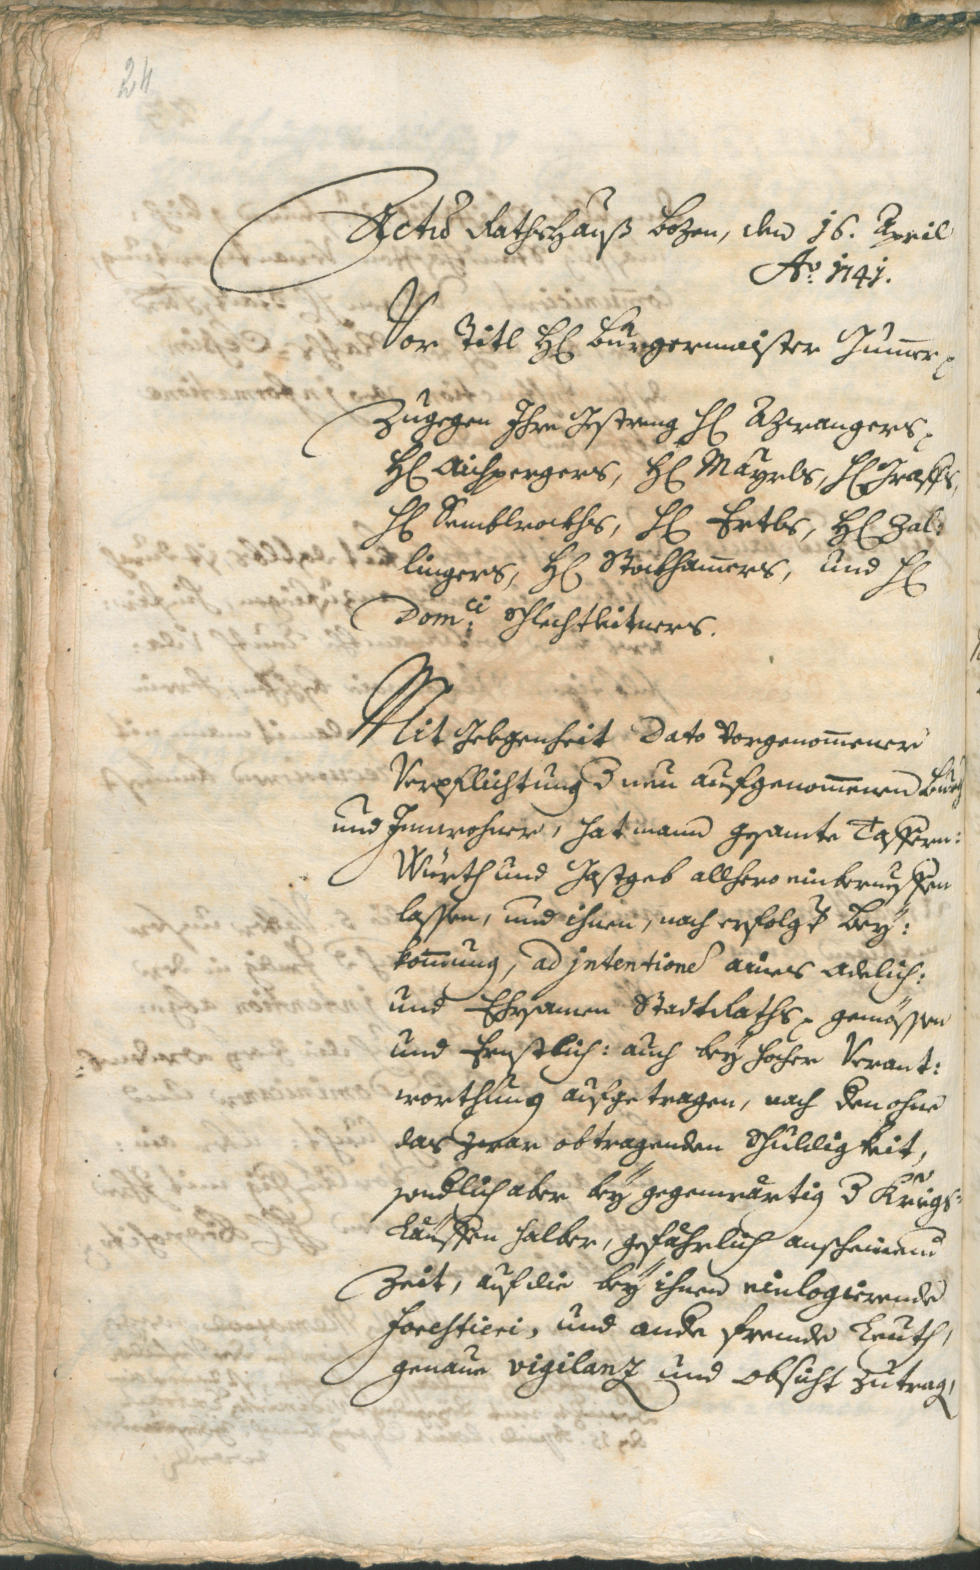 24
Actũ Rathshauß Bozen, den 16. April
Aõ: 1741.
Vor Titl H: Burgermaister Gum̄er
Zugegen Ihro Gestreng H: Azwangers,
H: Aichpergers, H: Mayrls, H: Graffs,
H: Semblrockhs, H: Ertls, H: Zal:
lingers, H: Stockham̄ers, und H:
Dom:ci Schlechtleitners.
Mit Gelegenheit Dato vorgenom̄ener
Verpflichtung d neu aufgenom̄enen Burg
und Innwohner, hat mann gesamte Taffern:
Würth und Gastgeb allhero einberueffen
lassen, und ihnen, nach erfolgt Bey:
kom̄ung, ad intentionẽ aines Adelich:
und Ehrsamen StadtRaths gemössen
und Ernstlich: auch bey hocher Verant:
worthung aufgetragen, nach den ohne
das zwar obtragenden Schuldigkeit,
sondlich aber bey gegenwärtig d Kriegs:
Läuffen halber, gefährlich anscheinend
Zeit, auf die bey ihnen einlogierende
forestieri, und ande fremde Leuth,
genaue vigilanz und obsicht zutrag